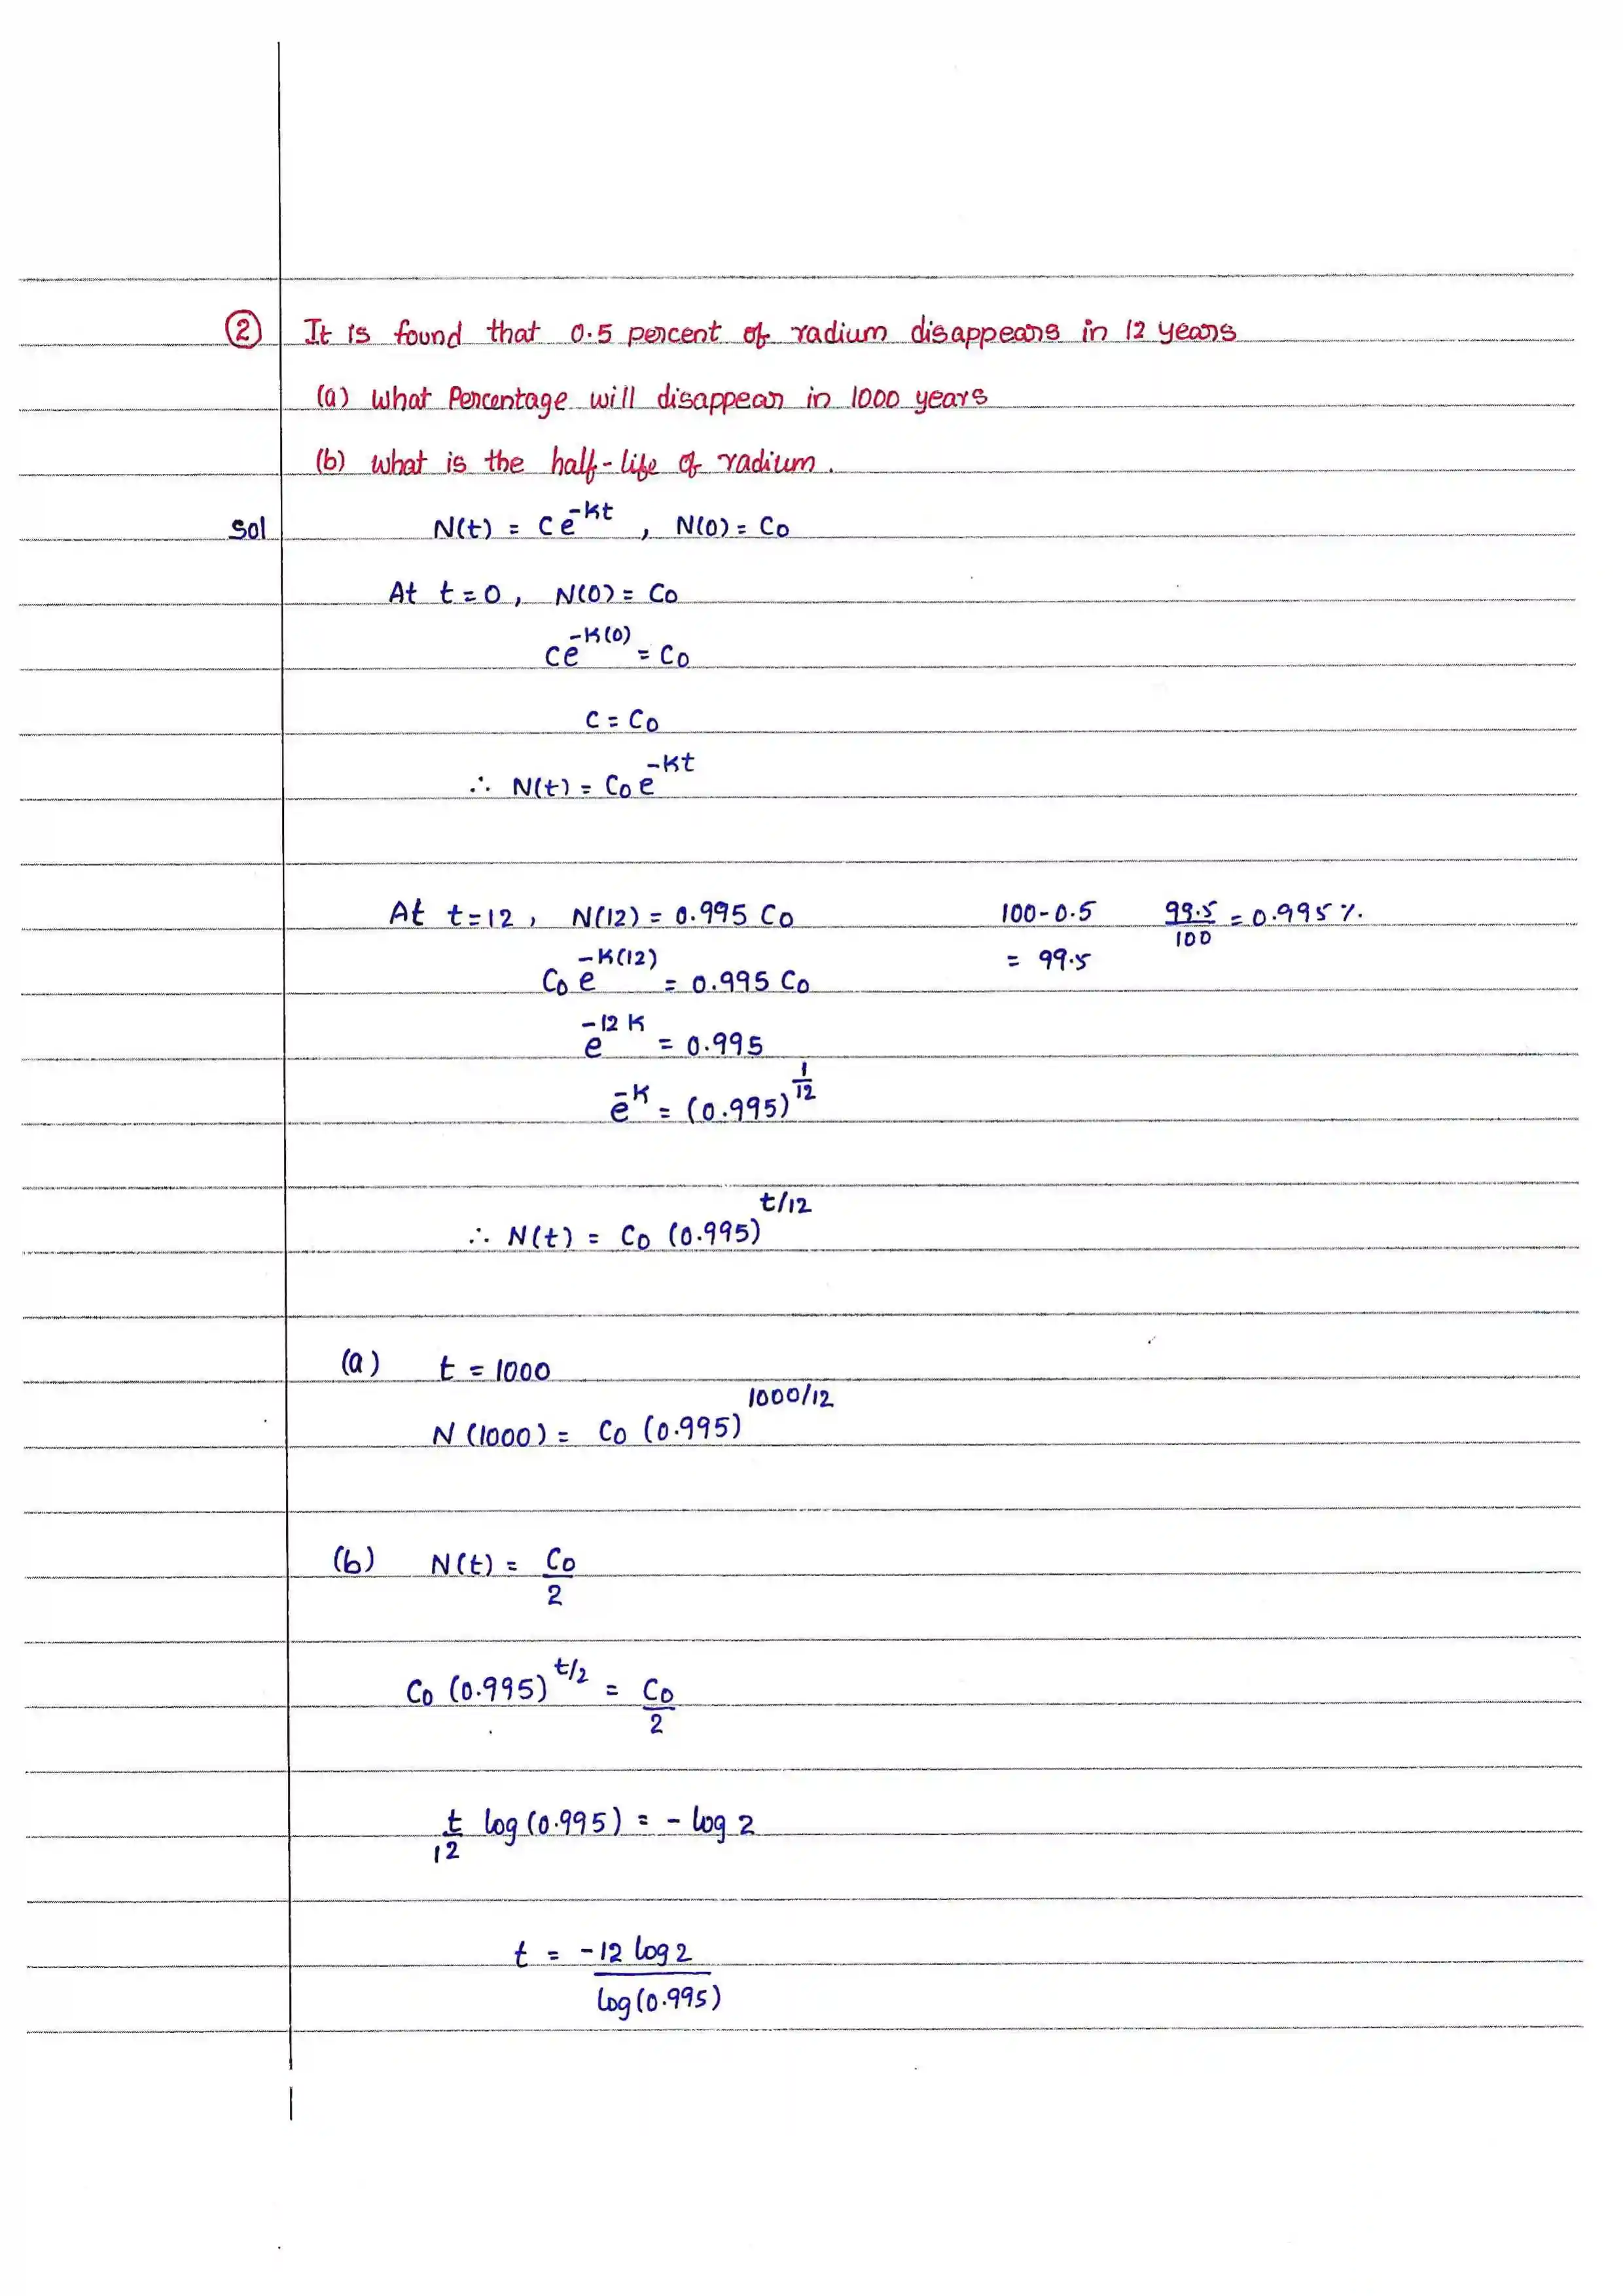 ② It is found that 0.5 percent of radium disappears in 12 years
(a) What Percentage will disappear in 1000 years
(b) What is the half-life of radium.
Sol N(t) = Ce^{-Kt} , N(0) = C₀
At t=0, N(0) = C₀
Ce^{-K(0)} = C₀
C = C₀
∴ N(t) = C₀e^{-Kt}
At t=12, N(12) = 0.995 C₀ 100-0.5 99.5/100 = 0.995%.
= 99.5
C₀e^{-K(12)} = 0.995 C₀
e^{-12K} = 0.995
e^{-K} = (0.995)^{1/12}
∴ N(t) = C₀ (0.995)^{t/12}
(a) t = 1000
N(1000) = C₀ (0.995)^{1000/12}
(b) N(t) = C₀/2
C₀ (0.995)^{t/2} = C₀/2
t/12 log(0.995) = - log 2
t = -12 log 2/log(0.995)